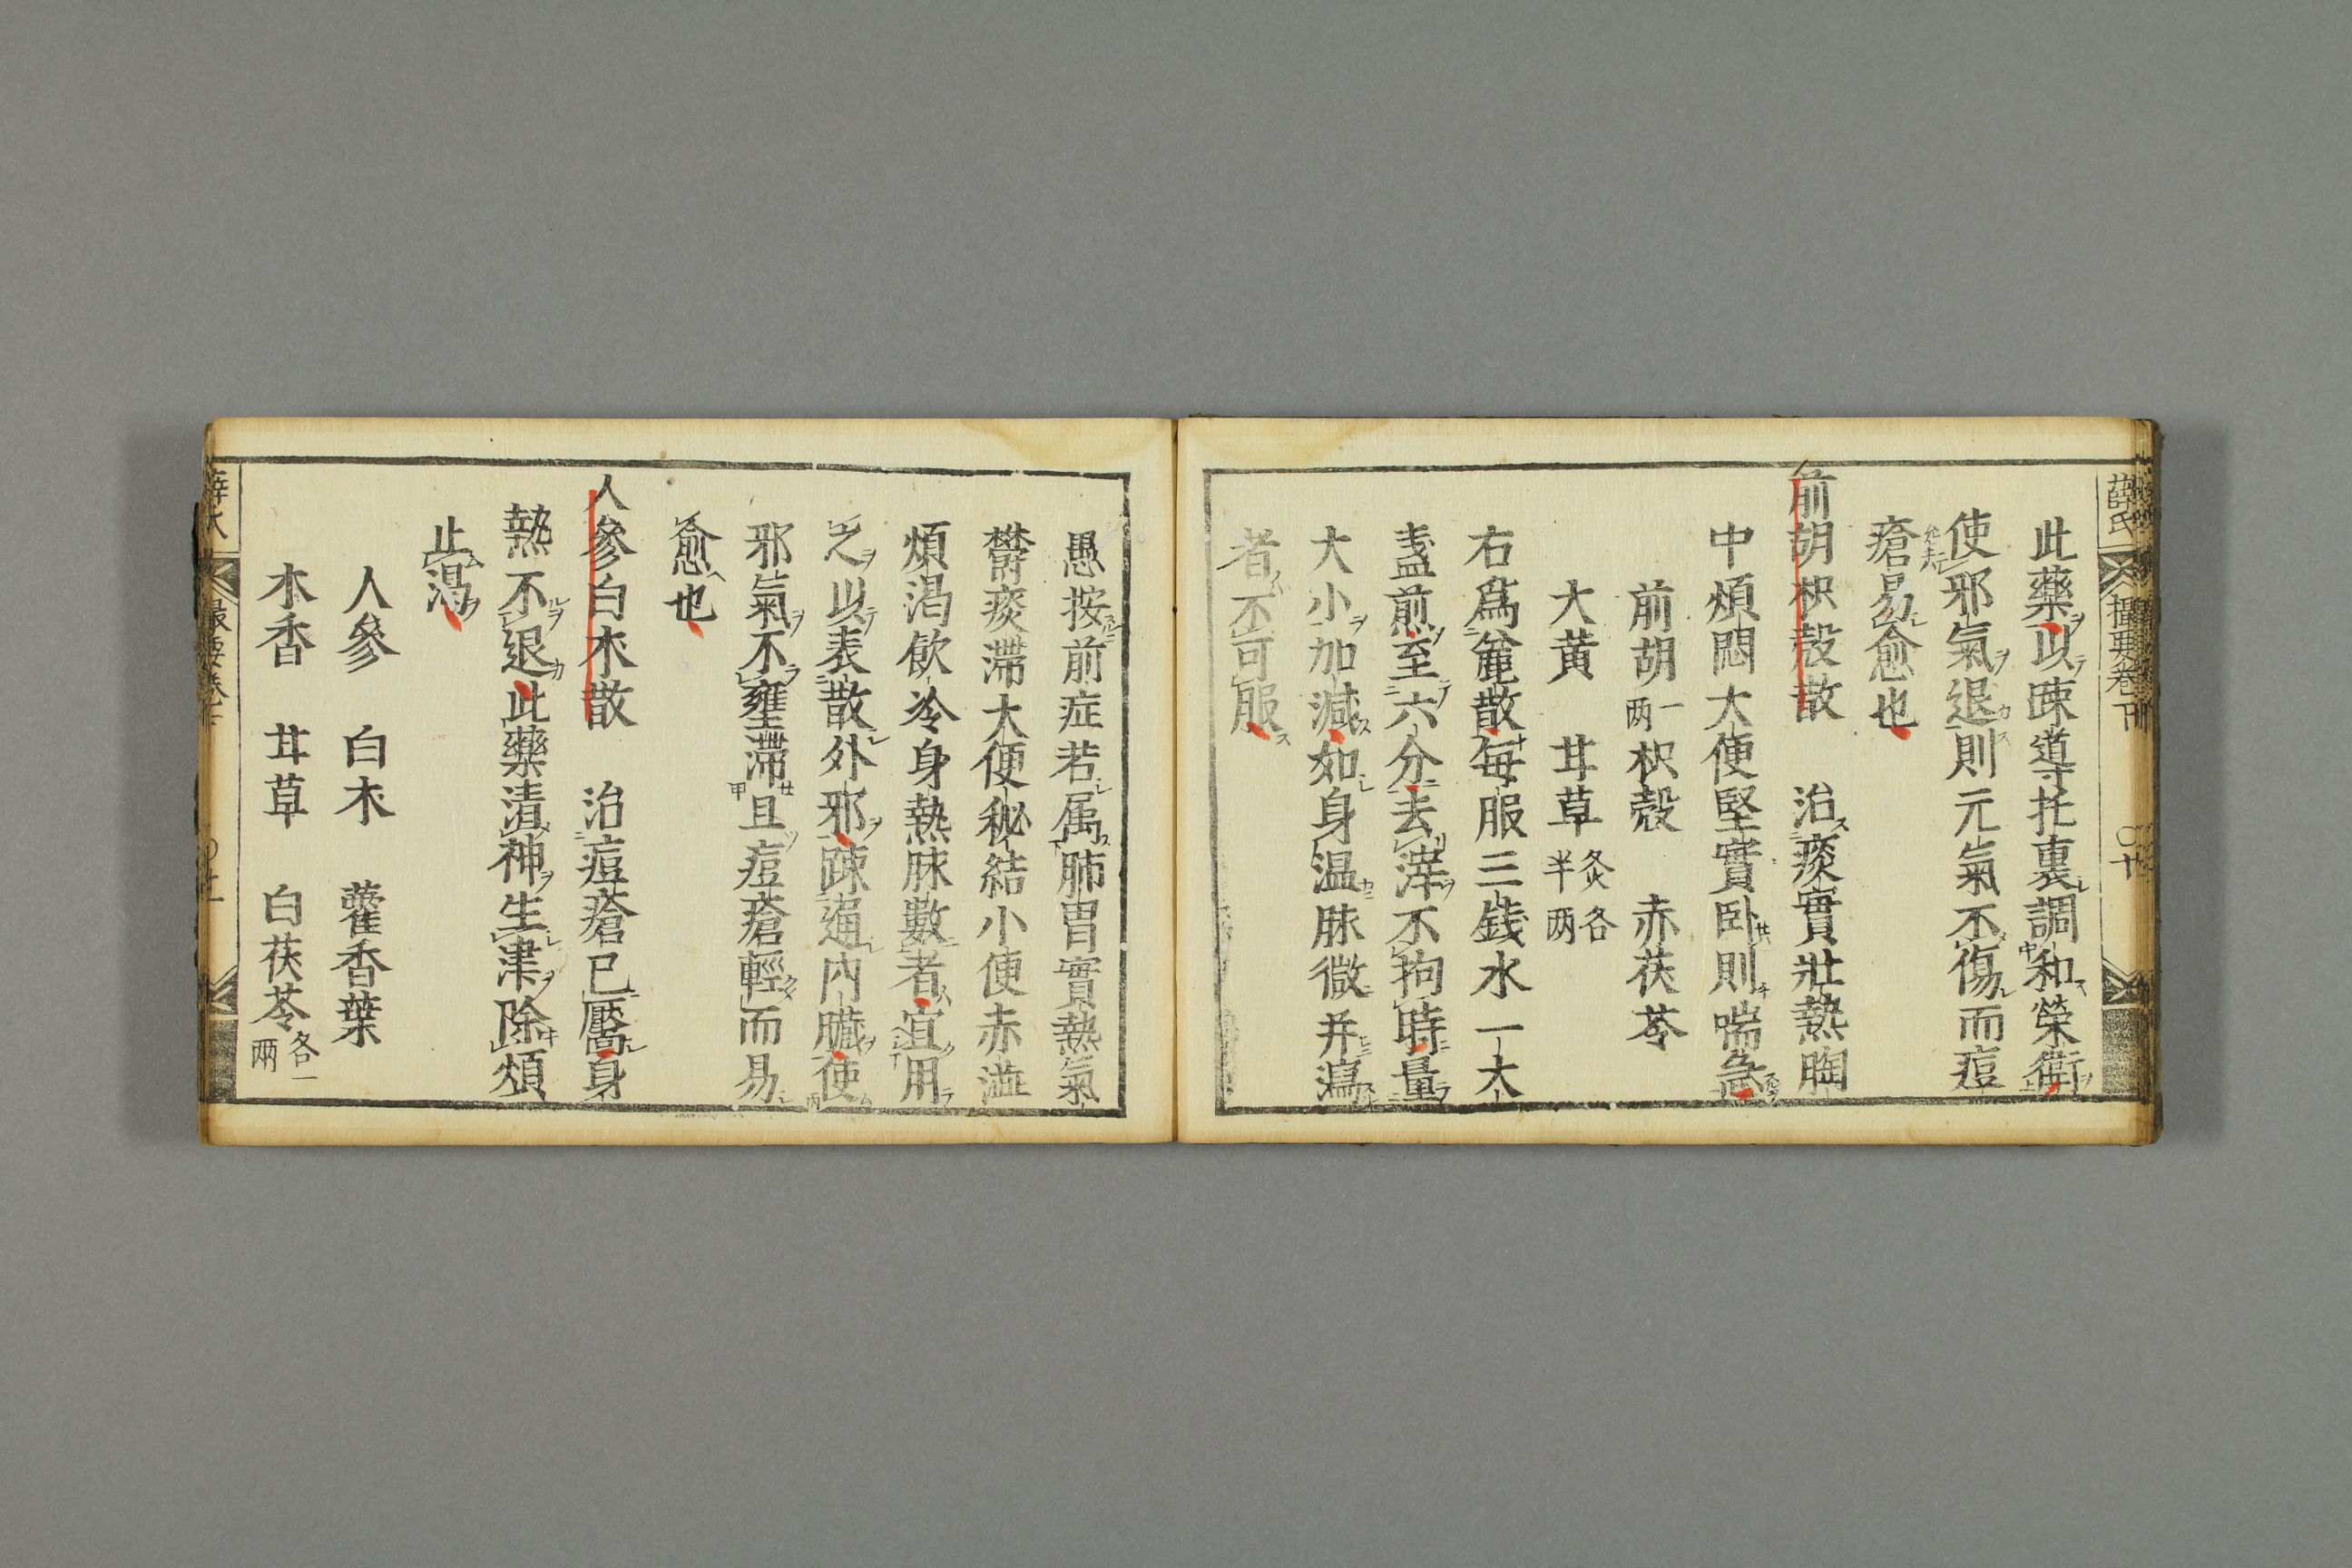 薛氏 攝要卷下 〇廿
此藥以踈導托裏調和榮衛
使邪氣退則元氣不傷而痘
瘡易愈也
前胡枳殼散 治痰實壯熱胸
中煩悶大便堅實卧則喘急
前胡一两 枳殼 赤茯苓
大黄 甘草炙各半两
右爲麄散每服三錢水一大
盞煎至六分去滓不拘時量
大小加減如身温脉微并瀉
者不可服
愚按前症若属肺胃實熱氣
欝痰滯大便秘結小便赤澁
煩渇飲冷身熱脉數者宜用
之以表散外邪踈通内臓使
邪氣不壅滯且痘瘡輕而易
愈也
人參白朮散 治痘瘡已靨身
熱不退此藥清神生津除煩
止渇
人參 白朮 藿香葉
木香 甘草 白茯苓各一兩